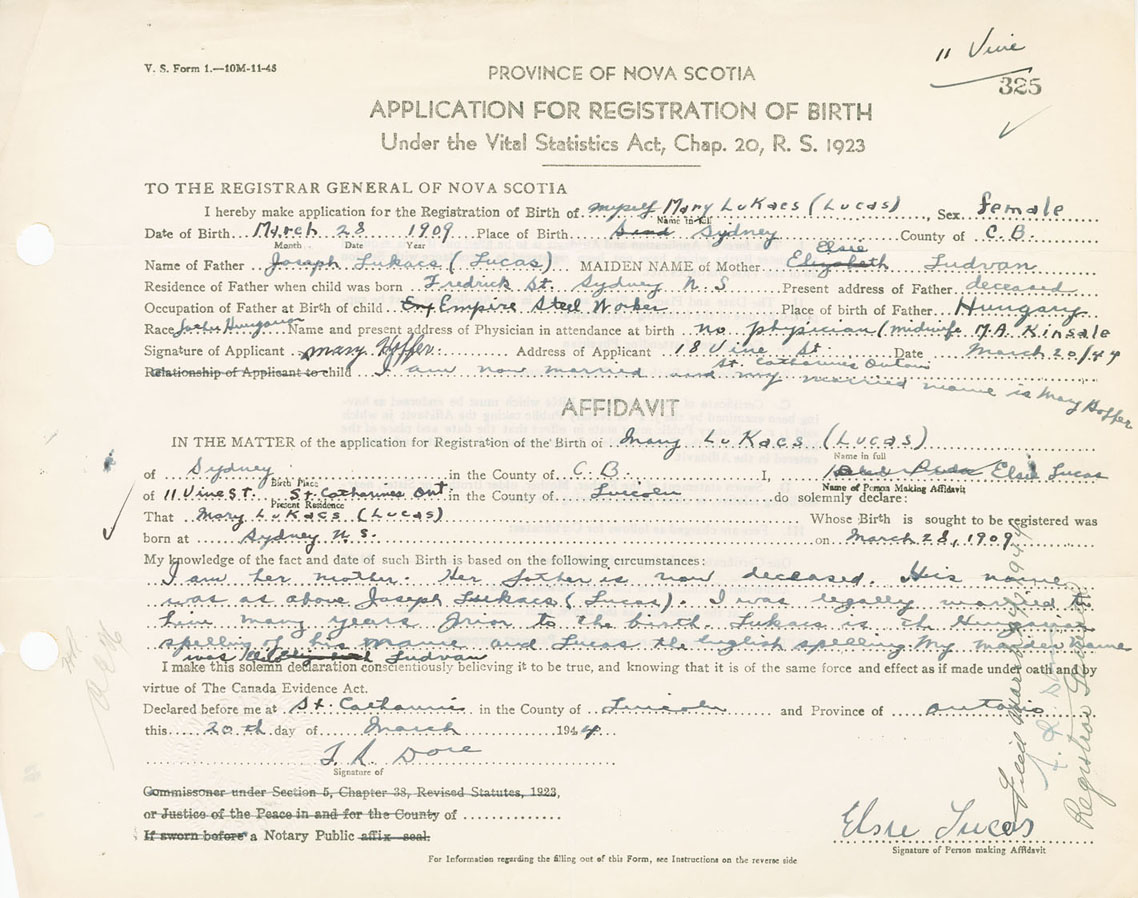 V. S. Form 1.—10M-11-43
11 Vine
325
PROVINCE OF NOVA SCOTIA
APPLICATION FOR REGISTRATION OF BIRTH
Under the Vital Statistics Act, Chap. 20, R. S. 1923
TO THE REGISTRAR GENERAL OF NOVA SCOTIA
I hereby make application for the Registration of Birth of myself Mary LuKacs (Lucas), Sex female
Name in full
Date of Birth March 28 1909 Place of Birth Sydney County of C. B.
Month Date Year
Name of Father Joseph Lukacs (Lucas) MAIDEN NAME of Mother Elsie Elizabeth Ludvan
Residence of Father when child was born Fredrick St. Sydney N. S. Present address of Father deceased
Occupation of Father at Birth of child Empire Steel Worker Place of Birth of Father Hungary
Race Hungarian Name and present address of Physician in attendance at birth no physician (midwife M.A. Kinsale
Signature of Applicant Mary Hoffer Address of Applicant 18 Vine St. St. Catharines Ontario Date March 20/44
Relationship of Applicant to child I am now married and my married name is Mary Hoffer
AFFIDAVIT
IN THE MATTER of the application for Registration of the Birth of Mary LuKacs (Lucas)
Name in full
of Sydney in the County of C. B. I, Elsie Lucas
Birth Place Name of Person Making Affidavit
of 11 Vine ST. St. Catharines Ont in the County of Lincoln do solemnly declare:
Present Residence
That Mary LuKacs (Lucas) Whose Birth is sought to be registered was
born at Sydney N. S. on March 28, 1909
My knowledge of the fact and date of such Birth is based on the following circumstances:
I am her mother. Her father is now deceased. His name
was as above Joseph Lukacs (Lucas). I was legally married to
him many years prior to the birth. Lukacs is the Hungarian
spelling of his name and Lucas the English spelling. My maiden name
was Ludvan
I make this solemn declaration conscientiously believing it to be true, and knowing that it is of the same force and effect as if made under oath and by
virtue of The Canada Evidence Act.
Declared before me at St. Catharines in the County of Lincoln and Province of Ontario
this 20th day of March 1944
Signature of
Commissoner under Section 5, Chapter 38, Revised Statutes, 1923,
or Justice of the Peace in and for the County of
If sworn before a Notary Public affix seal.
Elsie Lucas
Signature of Person making Affidavit
For Information regarding the filling out of this Form, see Instructions on the reverse side